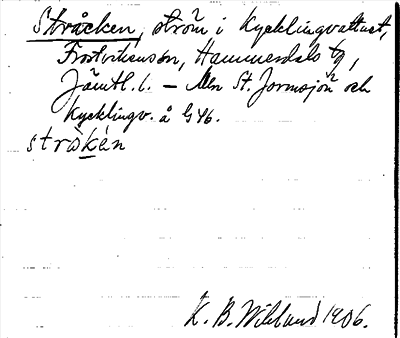 Stråcken, ström i Kycklingvattnet,
Frostvikens sn, Hammerdals tg,
Jämtl. l. – Mln St. Jormsjön och
Kycklingv. å G46.
stråkèn
K. B. Wiklund 1906.